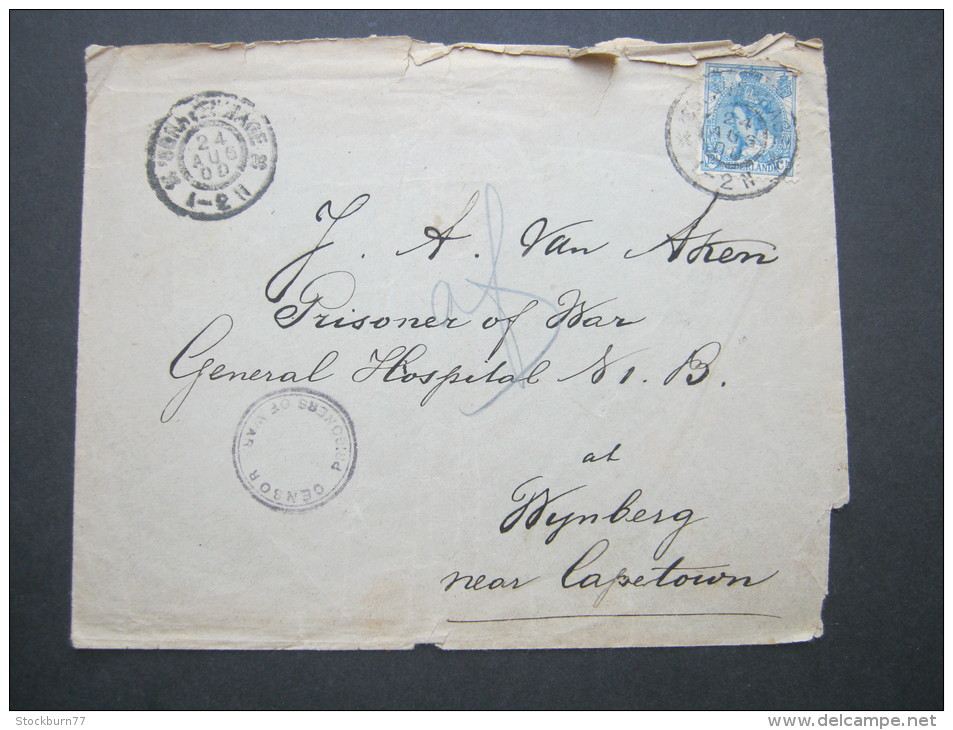 'S GRAVENHAGE
24
AUG
00
1-2 N
24
AUG
00
1-2 N
NEDERLAND
J. A. Van Aken
Prisoner of War
General Hospital N 1. B.
at
Wynberg
near Capetown
CENSOR
PRISONERS OF WAR
Stockburn77
www.delcampe.net